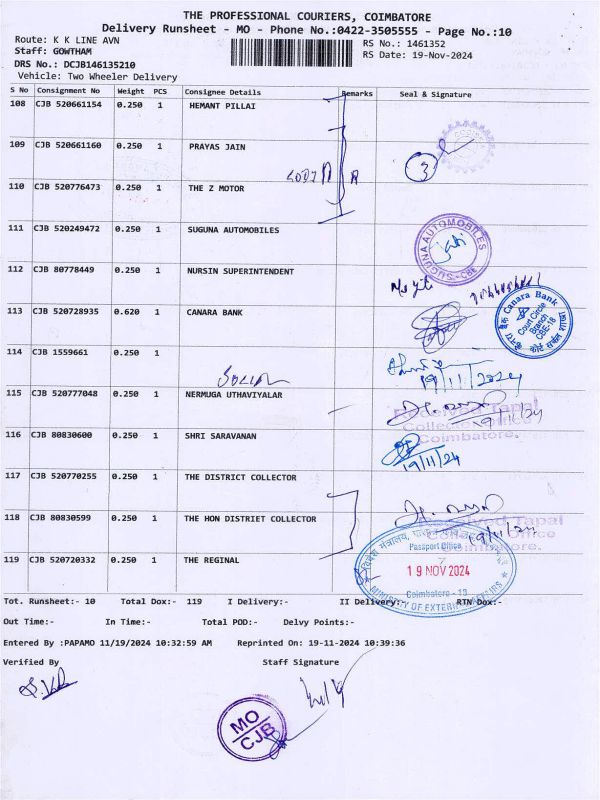 THE PROFESSIONAL COURIERS, COIMBATORE
Delivery Runsheet - MO - Phone No.:0422-3505555 - Page No.:10
Route: K K LINE AVN
RS No.: 1461352
Staff: GOWTHAM
RS Date: 19-Nov-2024
DRS No.: DCJB146135210
Vehicle: Two Wheeler Delivery
S No Consignment No Weight PCS Consignee Details Remarks Seal & Signature
108 CJB 520661154 0.250 1 HEMANT PILLAI
109 CJB 520661160 0.250 1 PRAYAS JAIN
3
110 CJB 520776473 0.250 1 THE Z MOTOR
111 CJB 520249472 0.250 1 SUGUNA AUTOMOBILES
SUGUNA AUTOMOBILES
CBE
112 CJB 80778449 0.250 1 NURSIN SUPERINTENDENT
113 CJB 520728935 0.620 1 CANARA BANK
Canara Bank
Court Circle
Branch
CBE-18
114 CJB 1559661 0.250 1
19/11/2024
115 CJB 520777048 0.250 1 NERMUGA UTHAVIYALAR
Received Tapal
Collector Office
Coimbatore.
19/11/24
116 CJB 80830600 0.250 1 SHRI SARAVANAN
19/11/24
117 CJB 520770255 0.250 1 THE DISTRICT COLLECTOR
118 CJB 80830599 0.250 1 THE HON DISTRIET COLLECTOR
Received Tapal
Collector Office
Coimbatore.
19/11/24
119 CJB 520720332 0.250 1 THE REGINAL
Passport Office
7
19 NOV 2024
Coimbatore - 18
MINISTRY OF EXTERNAL AFFAIRS
Tot. Runsheet:- 10 Total Dox:- 119 I Delivery:- II Delivery:- RTN Dox:-
Out Time:- In Time:- Total POD:- Delvy Points:-
Entered By :PAPAMO 11/19/2024 10:32:59 AM Reprinted On: 19-11-2024 10:39:36
Verified By Staff Signature
MO
CJB